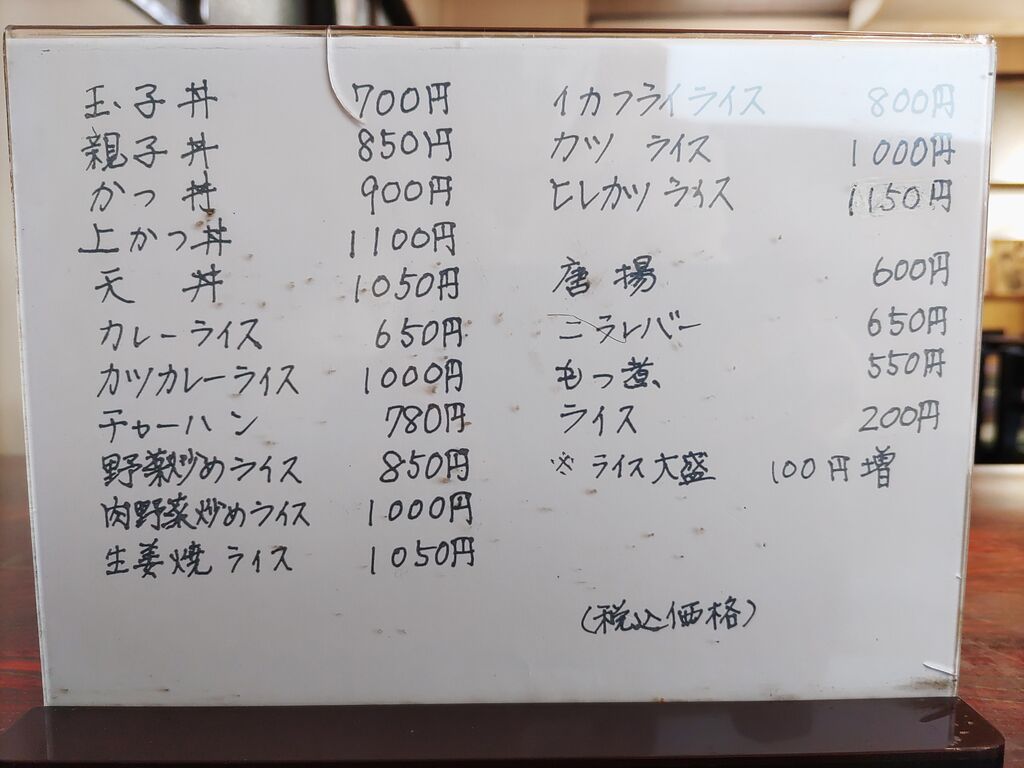 玉子丼 700円
親子丼 850円
かつ丼 900円
上かつ丼 1100円
天丼 1050円
カレーライス 650円
カツカレーライス 1000円
チャーハン 780円
野菜炒めライス 850円
肉野菜炒めライス 1000円
生姜焼ライス 1050円
イカフライライス 800円
カツライス 1000円
ヒレカツライス 1150円
唐揚 600円
ニラレバー 650円
もつ煮 550円
ライス 200円
※ライス大盛 100円増
(税込価格)